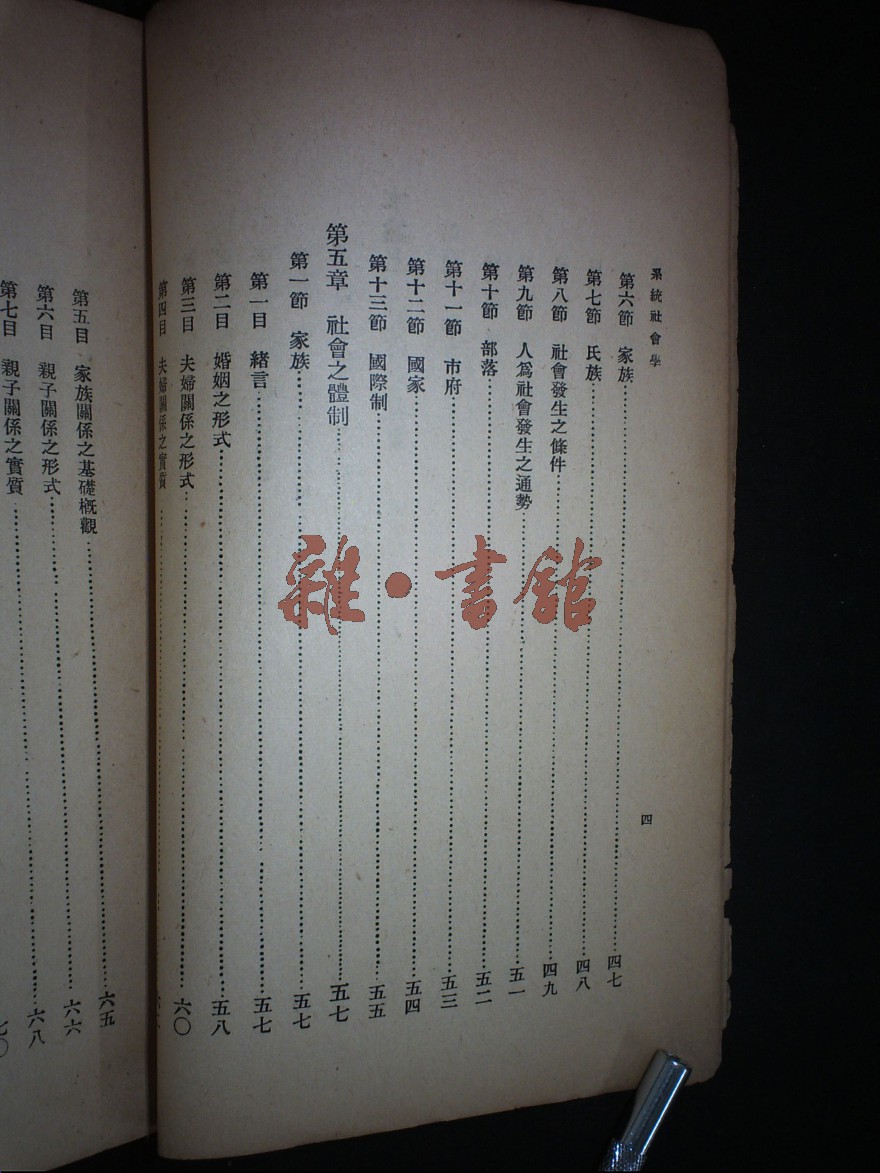 系統社會學
四
第六節 家族……四七
第七節 氏族……四八
第八節 社會發生之條件……四九
第九節 人爲社會發生之通勢……五一
第十節 部落……五二
第十一節 市府……五三
第十二節 國家……五四
第十三節 國際制……五五
第五章 社會之體制……五七
第一節 家族……五七
第一目 緒言……五七
第二目 婚姻之形式……五八
第三目 夫婦關係之形式……六〇
第四目 夫婦關係之實質……
第五目 家族關係之基礎槪觀……六五
第六目 親子關係之形式……六六
第七目 親子關係之實質……六八
七〇
雜·書館